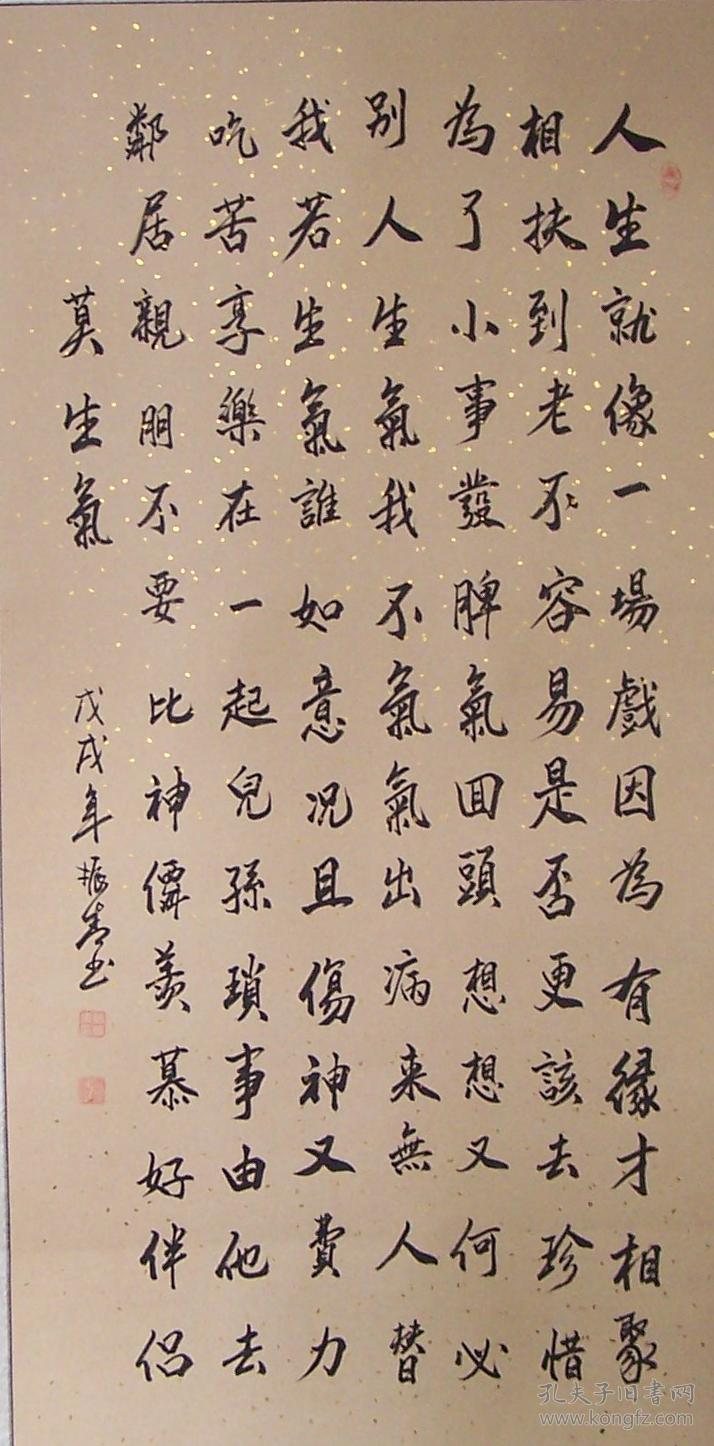 人生就像一場戲因為有緣才相聚
相扶到老不容易是否更該去珍惜
為了小事發脾氣回頭想想又何必
別人生氣我不氣氣出病来無人替
我若生氣誰如意况且傷神又費力
吃苦享樂在一起兒孫瑣事由他去
鄰居親朋不要比神僊羨慕好伴侣
莫生氣
戊戌年振春书
孔夫子旧書网
www.kongfz.com